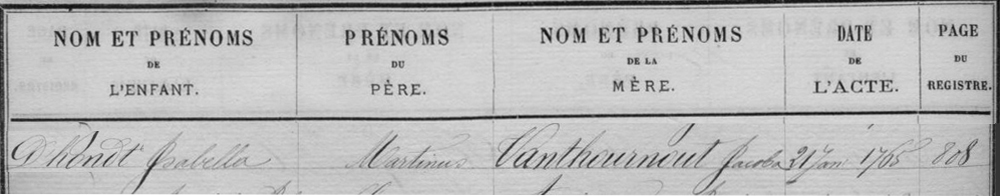 NOM ET PRÉNOMS DE L'ENFANT.
PRÉNOMS DU PÈRE.
NOM ET PRÉNOMS DE LA MÈRE.
DATE DE L'ACTE.
PAGE DU REGISTRE.
D'hondt Isabella Martinus Vanthournout Jacoba 21 Jan 1765 808